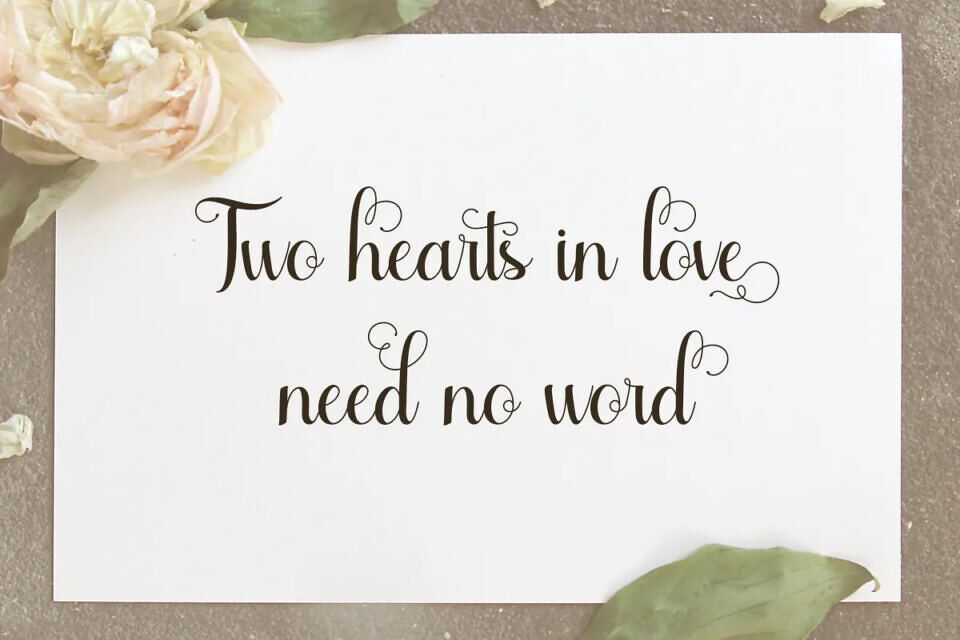 Two hearts in love
need no word